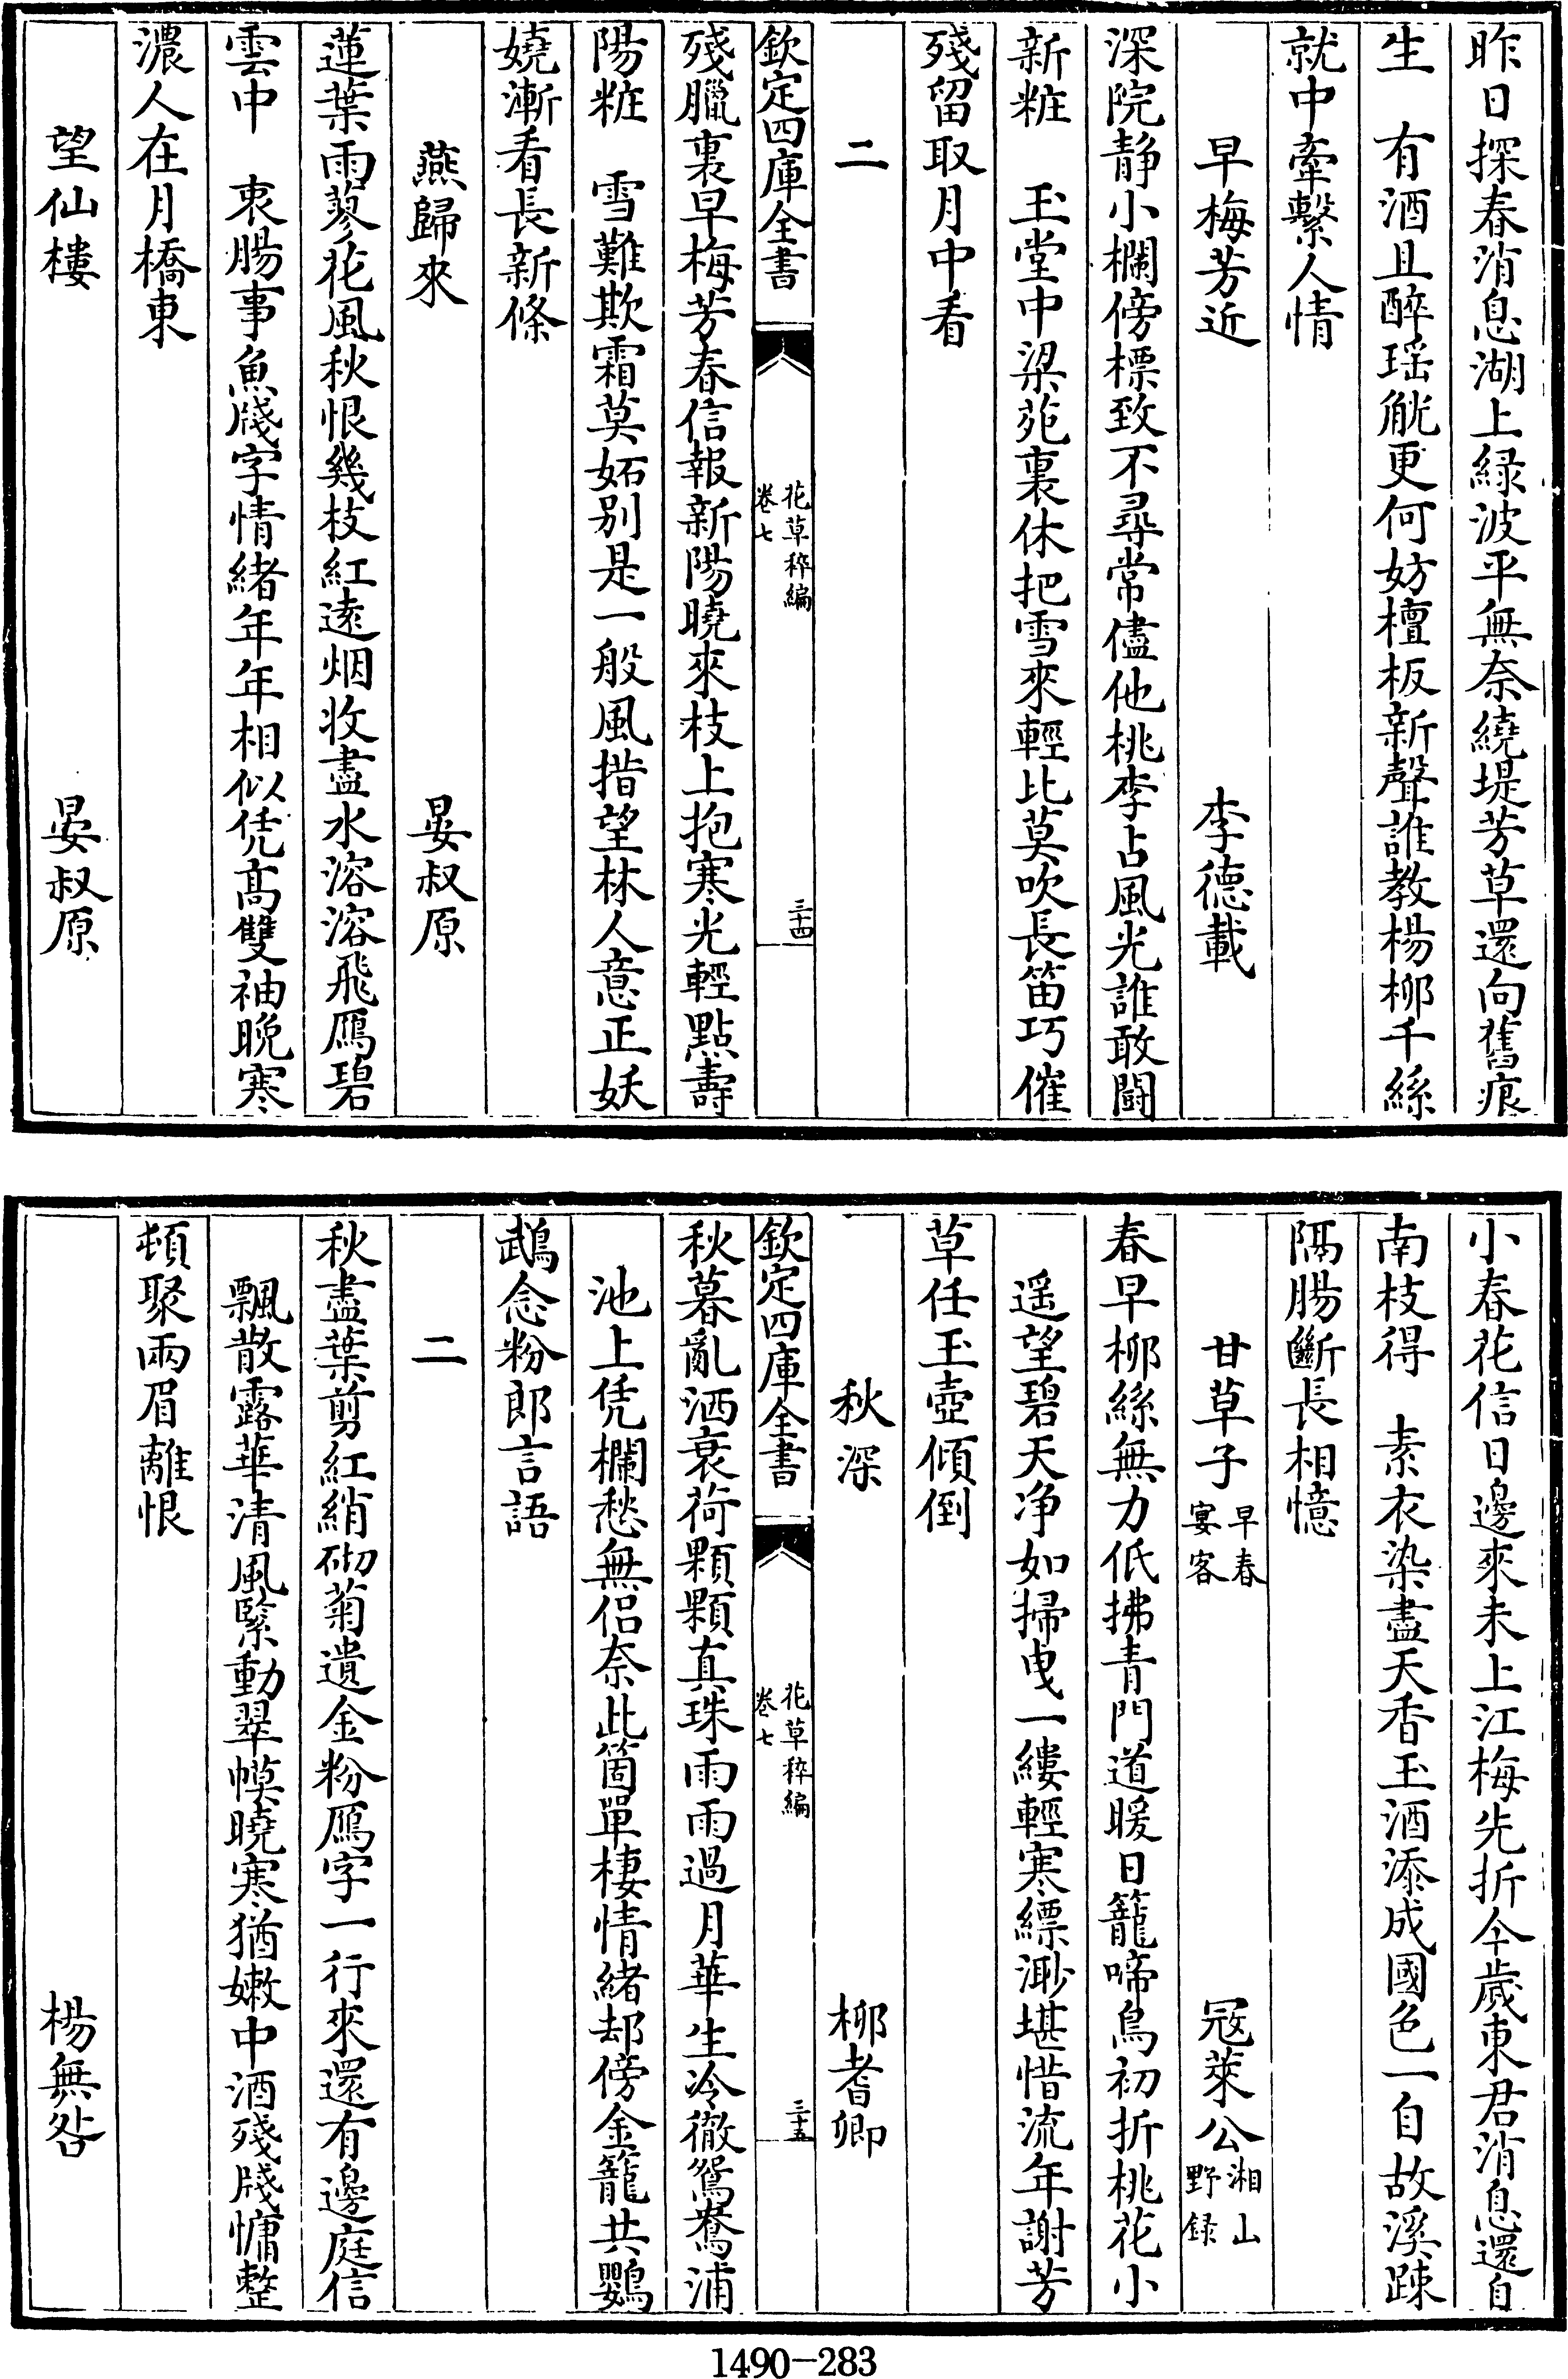 昨日探春消息湖上緑波平無奈繞堤芳草還向舊痕
生　有酒且醉瑶觥更何妨檀板新聲誰教楊栁千絲
就中牽繫人情
早梅芳近　李德載
深院静小欄傍標致不尋常儘他桃李占風光誰敢鬪
新粧　玉堂中梁苑裏休把雪來輕比莫吹長笛巧催
殘留取月中看
二
欽定四庫全書　花草稡編　卷七　三十四
殘臘裏早梅芳春信報新陽曉來枝上抱寒光輕點壽
陽粧　雪難欺霜莫妬别是一般風措望林人意正妖
嬈漸看長新條
燕歸來　晏叔原
蓮葉雨蓼花風秋恨幾枝紅逺烟收盡水溶溶飛鴈碧
雲中　衷腸事魚牋字情緒年年相似凭髙雙袖晚寒
濃人在月橋東
望仙樓　晏叔原
小春花信日邊來未上江梅先折今歳東君消息還自
南枝得　素衣染盡天香玉酒添成國色一自故溪踈
隔腸斷長相憶
甘草子早春宴客　冦萊公湘山野録
春早栁絲無力低拂青門道暖日籠啼鳥初折桃花小
遥望碧天净如掃曵一縷輕寒縹渺堪惜流年謝芳
草任玉壺傾倒
秋深　栁耆卿
秋暮亂洒衰荷顆顆真珠雨雨過月華生冷徹鴛鴦浦
池上凭欄愁無侣奈此箇單棲情緒却傍金籠共鸚
鵡念粉郎言語
二
秋盡葉剪紅綃砌菊遺金粉鴈字一行來還有邊庭信
飄散露華清風緊動翠幙曉寒猶嫩中酒殘牋慵整
頓聚兩眉離恨
楊無咎
1490-283